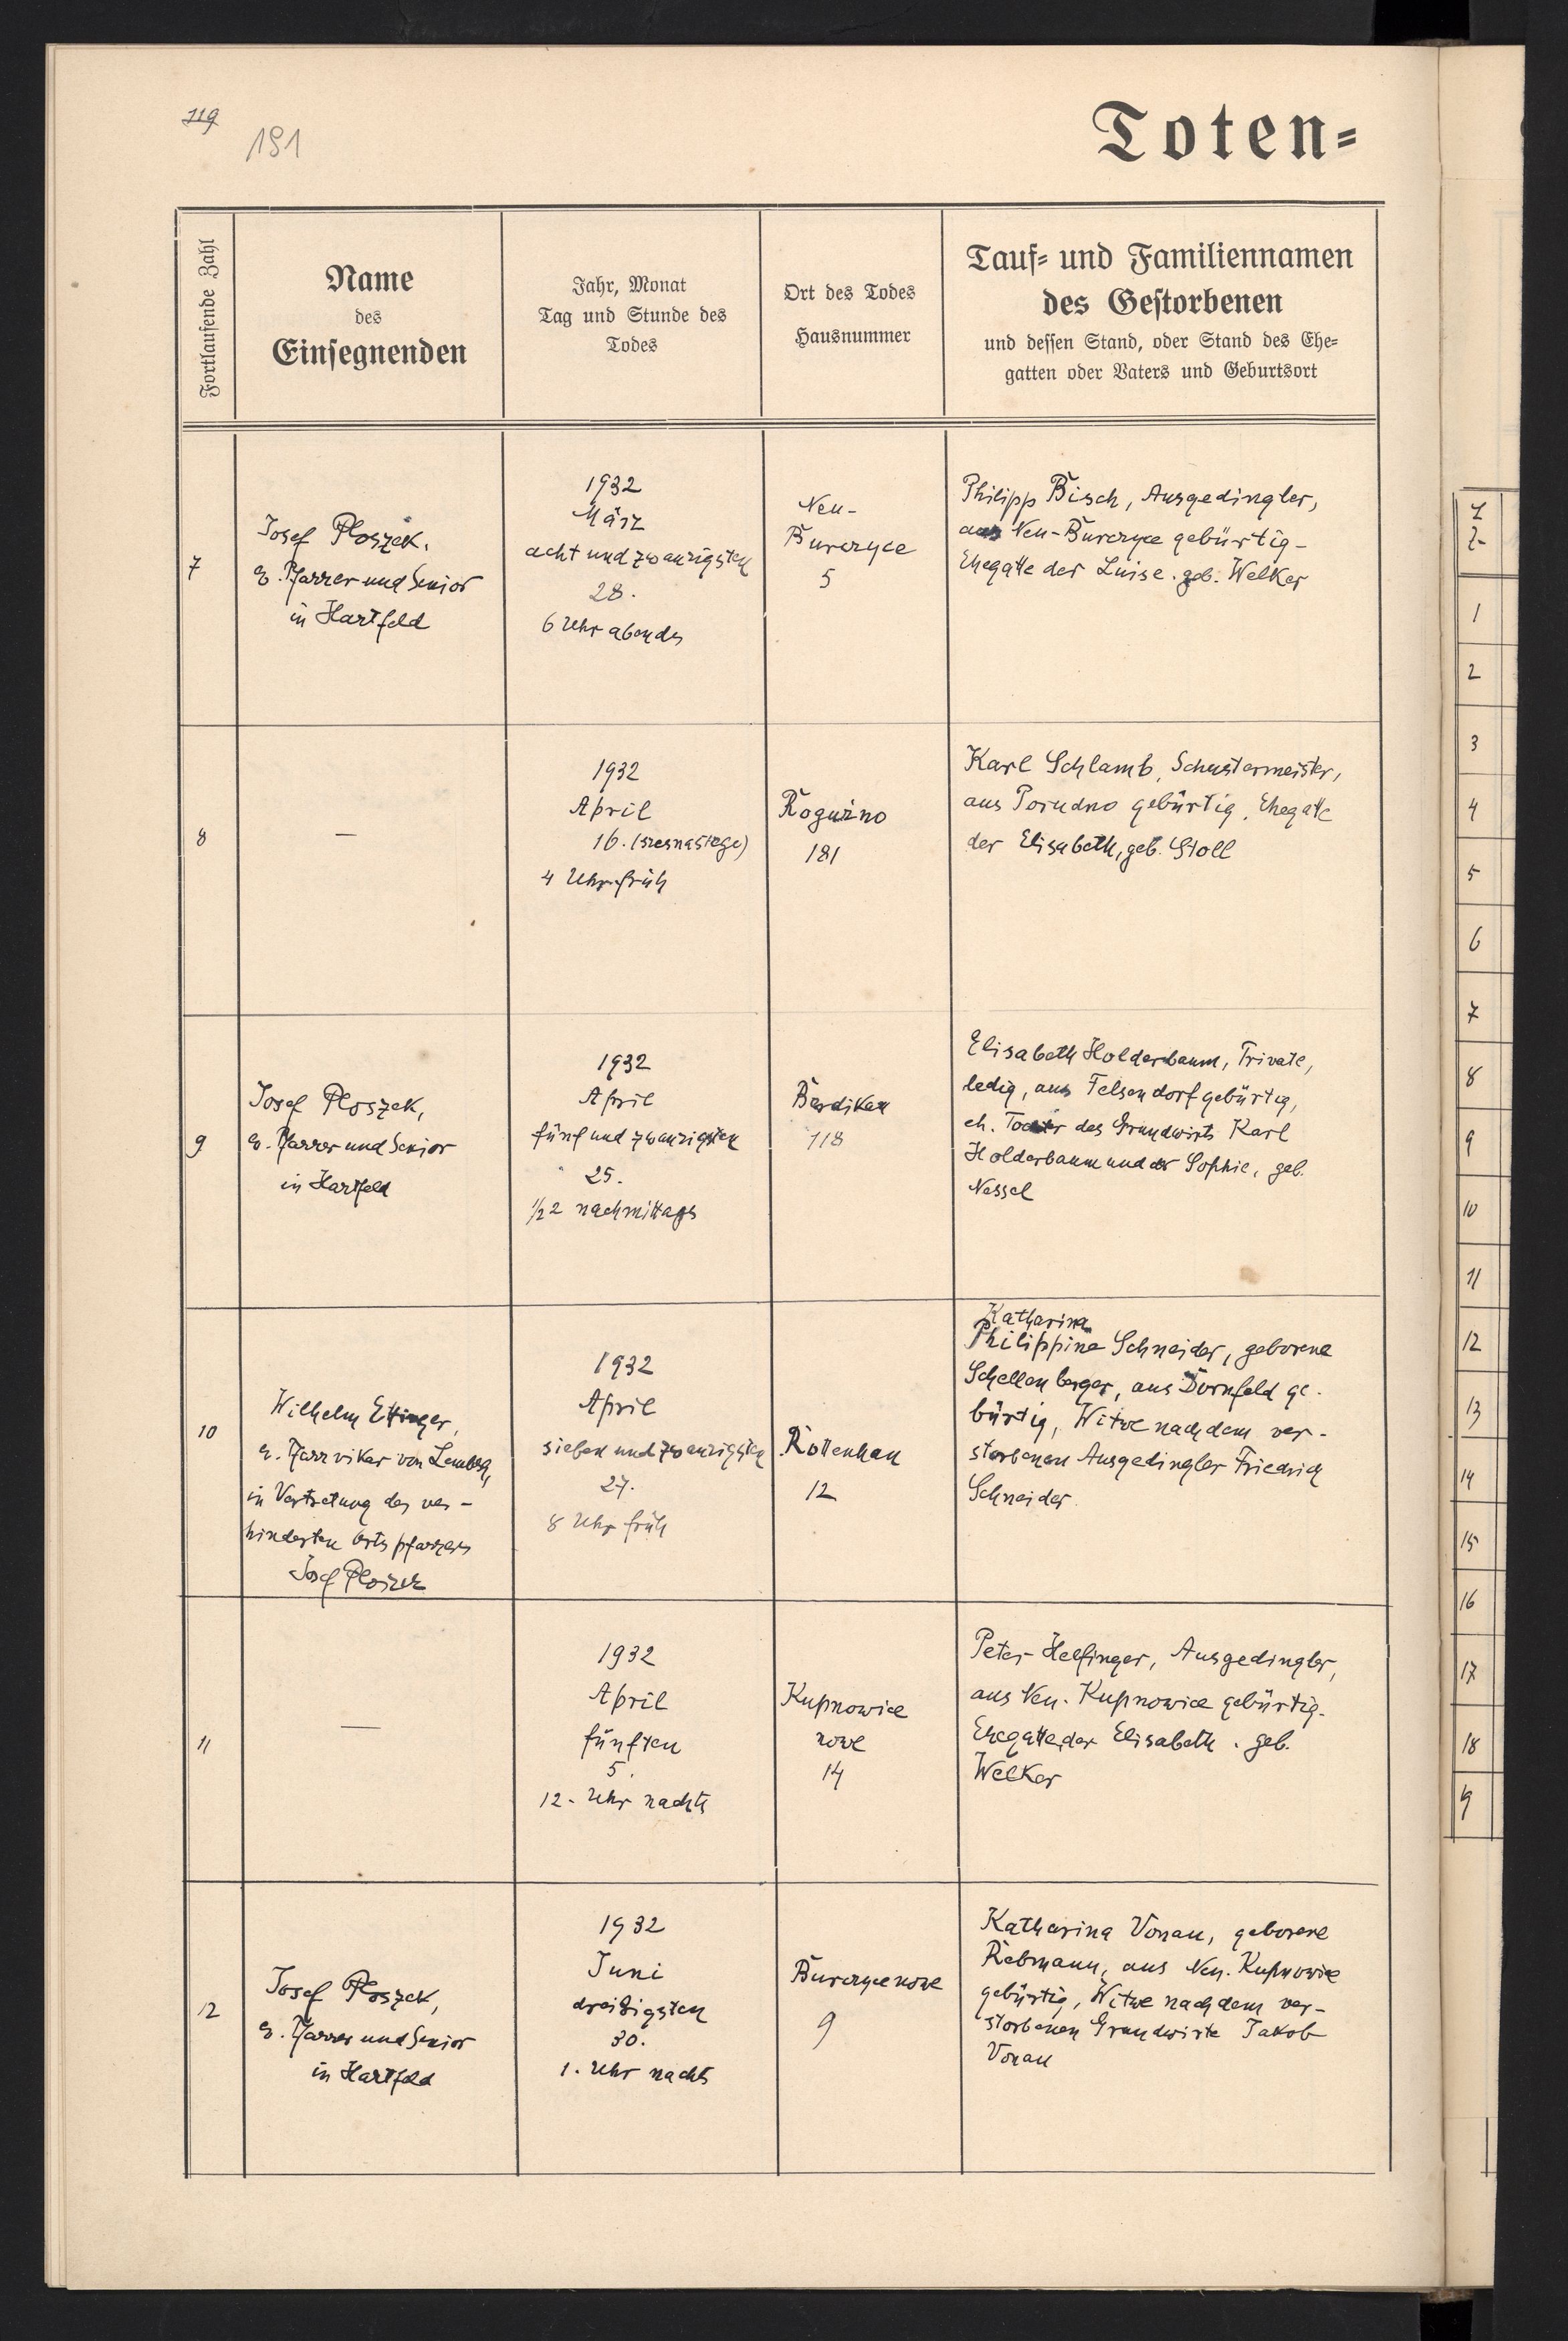 119
191
Toten=
Fortlaufende Zahl
Name
des
Einsegnenden
Jahr, Monat
Tag und Stunde des
Todes
Ort des Todes
Hausnummer
Tauf= und Familiennamen
des Gestorbenen
und dessen Stand, oder Stand des Ehe=
gatten oder Vaters und Geburtsort
7
Josef Ploszek.
e. Pfarrer und Senior
in Hartfeld
1932
März
acht und zwanzigsten
28.
6 Uhr abends
Neu-
Burczyce
5
Philipp Bisch, Ausgedingler,
aus Neu-Burczyce gebürtig-
Ehegatte der Luise. geb. Welker
8
—
1932
April
16. (szesnastego)
4 Uhr früh
Roguźno
181
Karl Schlamb, Schustermeister,
aus Porudno gebürtig, Ehegatte
der Elisabeth, geb. Stoll
9
Josef Ploszek,
e. Pfarrer und Senior
in Hartfeld
1932
April
fünf und zwanzigsten
25.
1/2 2 nachmittags
Berdikau
118
Elisabeth Holderbaum, Private,
ledig, aus Felsendorf gebürtig,
eh. Tochter des Grundwirts Karl
Holderbaum und der Sophie, geb.
Nessel
10
Wilhelm Ettinger,
e. Pfarrvikar von Lemberg,
in Vertretung des ver-
hinderten Ortspfarrers
Josef Ploszek
1932
April
sieben und zwanzigsten
27.
8 Uhr früh
Rottenhan
12
Katharina
Philippine Schneider, geborene
Schellenberger, aus Dornfeld ge-
bürtig, Witwe nach dem ver-
storbenen Ausgedingler Friedrich
Schneider
11
—
1932
April
fünften
5.
12. Uhr nachts
Kupnowice
nowe
14
Peter Helfinger, Ausgedingler,
aus Neu-Kupnowice gebürtig-
Ehegatte der Elisabeth. geb.
Welker
12
Josef Ploszek,
e. Pfarrer und Senior
in Hartfeld
1932
Juni
dreißigsten
30.
1. Uhr nachts
Burczyce nowe
9
Katharina Vonau, geborene
Rebmann, aus Neu-Kupnowice
gebürtig, Witwe nach dem ver-
storbenen Grundwirte Jakob
Vonau
1
2
3
4
5
6
7
8
9
10
11
12
13
14
15
16
17
18
19